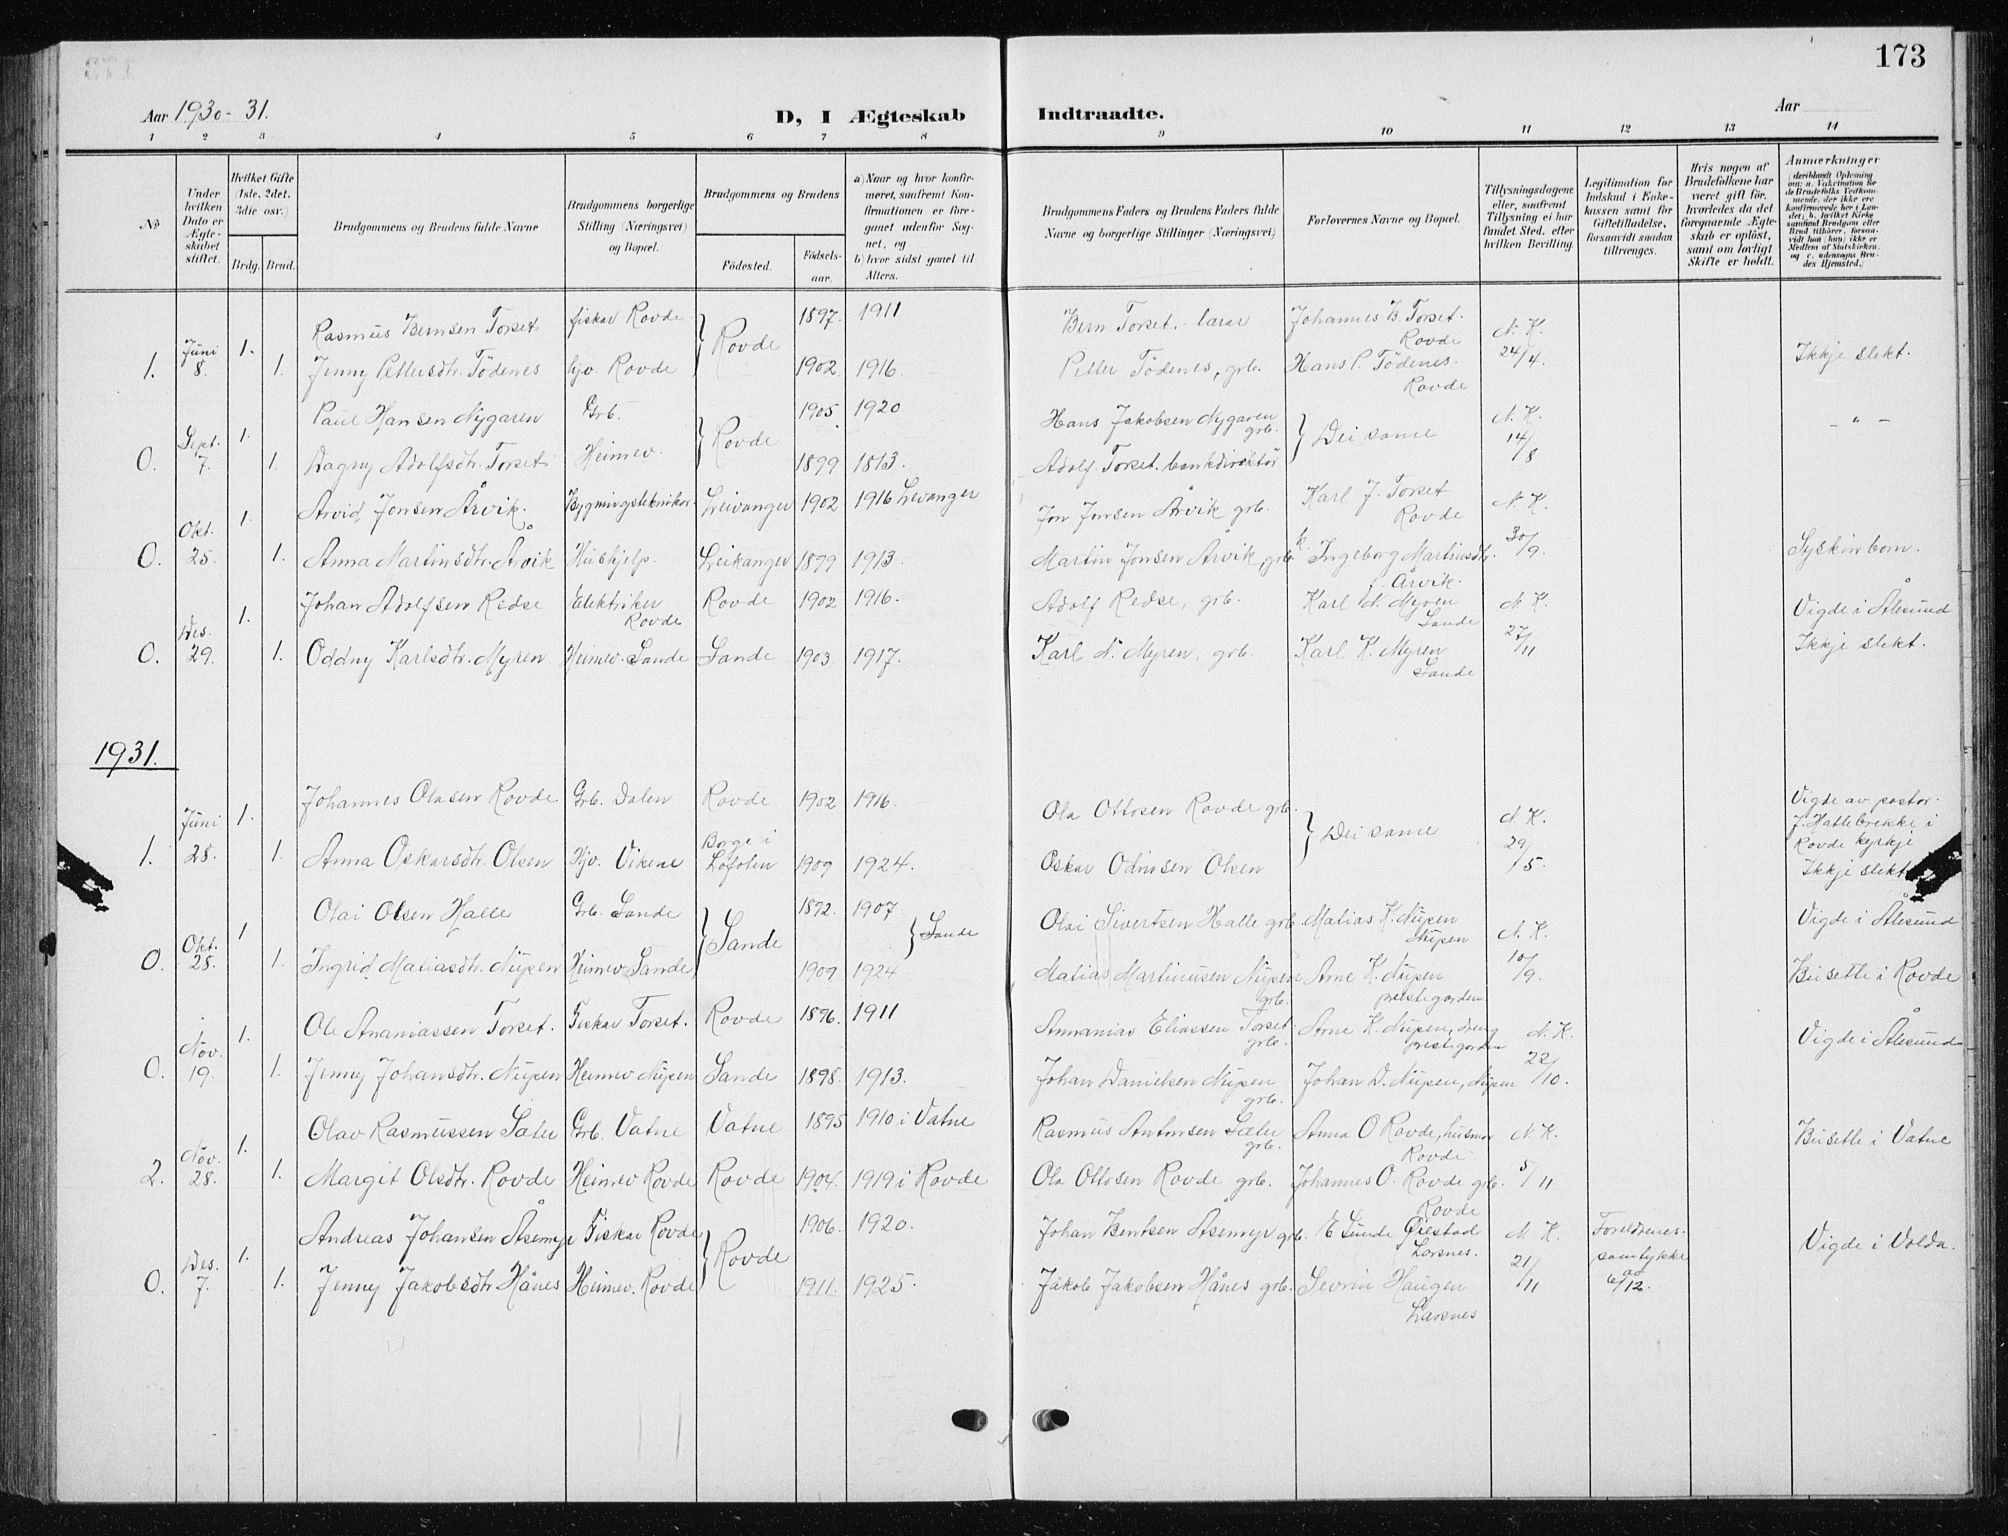 173
Aar 1930-31.
D, I Ægteskab Indtraadte.
Aar
1 2 3 4 5 6 7 8 9 10 11 12 13 14
No
Under hvilken Dato er Ægteskabet stiftet.
Hvilket Gifte (1ste, 2det, 3die osv.)
Brdg. Brud.
Brudgommens og Brudens fulde Navne
Brudgommens borgerlige Stilling (Næringsvei) og Bopæl.
Brudgommens og Brudens
Födested.
Födselsaar.
a) Naar og hvor konfirmeret, saafremt Konfirmationen er foregaaet udenfor Sognet, og
b) hvor sidst gaaet til Alters.
Brudgommens Faders og Brudens Faders fulde Navne og borgerlige Stillinger (Næringsvei)
Forlovernes Navne og Bopæl.
Tillysningsdagene eller, saafremt Tillysning ei har fundet Sted, efter hvilken Bevilling.
Legitimation for Indskud i Enkekassen samt for Giftetilladelse, forsaavidt saadan tiltrænges.
Hvis nogen af Brudefolkene har været gift för, hvorledes da det foregaaende Ægteskab er oplöst, samt om lovligt Skifte er holdt.
Anmærkninger
(deriblandt Oplysning om: a. Vakcination for de Brudefolks Vedkommende, der ikke ere konfirmerede her i Landet; b. hvilket Kirkesamfund Brudgom eller Brud tilhörer, forsaavidt han (hun) ikke er Medlem af Statskirken, og c. udensogns Brudes Hjemsted.)
Rasmus Bernsen Torset fiskar Rovde 1897. 1911 Bern Torset. - lærar Johannes B. Torset. Rovde N. K.
1. Juni 8. 1. 1. Jenny Pettersdtr. Tödenes hjv. Rovde } Rovde 1902 1916 Petter Tödenes, grb. Hans P. Tödenes. Rovde 24/4. Ikkje slekt.
Paul Hansen Nygaren Grb. 1905 1920 Hans Jakobsen Nygaren grb. N. K. - " -
0. Sept. 7. 1. 1. Dagny Adolfsdtr. Torset Heimev. } Rovde 1899 1813. Adolf Torset. bankdirektör } Dei same 14/8
Arvid Jonsen Årvik. Bygningsteknikar Leivanger 1902 1916 Levanger Jon Jonsen Årvik grb. Karl J. Torset Rovde N. K.
0. Okt. 25. 1. 1. Anna Martinsdtr. Årvik Hushjelp. Leikanger 1899 1913. Martin Jonsen Årvik, grb. Ingeborg Martinsdtr. Årvik. 30/9. Syskinborn.
Johan Adolfsen Redse Elektriker Rovde Rovde 1902 1916. Adolf Redse, grb. Karl N. Myren Sande N. K. Vigde i Ålesund
0. Des. 29. 1. 1. Oddny Karlsdtr. Myren Heimev. Sande Sande 1903 1917. Karl N. Myren, grb. Karl K. Myren Sande 27/11 Ikkje slekt.
1931.
Johannes Olasen Rovde Grb. Dalen Rovde 1902 1916 Ola Ottosen Rovde grb. N K. Vigde av pastor J. Hatlebrekke i
1. Juni 28. 1. 1. Anna Oskarsdtr. Olsen Hjv. Vikene Borge i Lofoten 1909 1924. Oskar Odinsen Olsen } Dei same 29/5 Rovde kyrkje Ikkje slekt
Olai Olsen Halle Grb. Sande 1892. 1907 Olai Sivertsen Halle grb. Matias K. Nupen Nupen N. K. Vigde i Ålesund
0. Okt. 28. 1 1. Ingrid Matiasdtr. Nupen Heimev Sande } Sande 1909 1924 } Sande Matias Martinusen Nupen grb. Arne K. Nupen prestegarden 10/9. Busette i Rovde
Ole Ananiassen Torset. Fiskar Torset. Rovde 1896. 1911 Annanias Eliassen Torset grb. Arne K. Nupen, dreng prestegarden N. K. Vigde i Ålesund
0. Nov. 19. 1. 1. Jenny Johansdtr. Nupen Heimev Nupen Sande 1898. 1913. Johan Danielsen Nupen grb. Johan D. Nupen, Nupen 22/10.
Olav Rasmussen Sæter Grb. Vatne Vatne 1895 1910 i Vatne Rasmus Antonsen Sæter grb. Anna O Rovde, husmor Rovde N. K. Busette i Vatne
2. Nov. 28. 1. 1. Margit Olsdtr. Rovde Heimev Rovde Rovde 1904. 1919 i Rovde Ola Ottosen Rovde grb. Johannes O. Rovde grb. Rovde 5/11
Andreas Johansen Åsemyr Fiskar Rovde 1906. 1920. Johan Bentsen Åsemyr grb. E Sunde Öiestad Larsnes. N. K. Foreldrenes samtykke Vigde i Volda.
0. Des. 7. 1. 1. Jenny Jakobsdtr Hånes Heimev. Rovde } Rovde 1911. 1925. Jakob Jakobsen Hånes grb. Sevrin Haugen Larsnes 21/11 av 6/12.